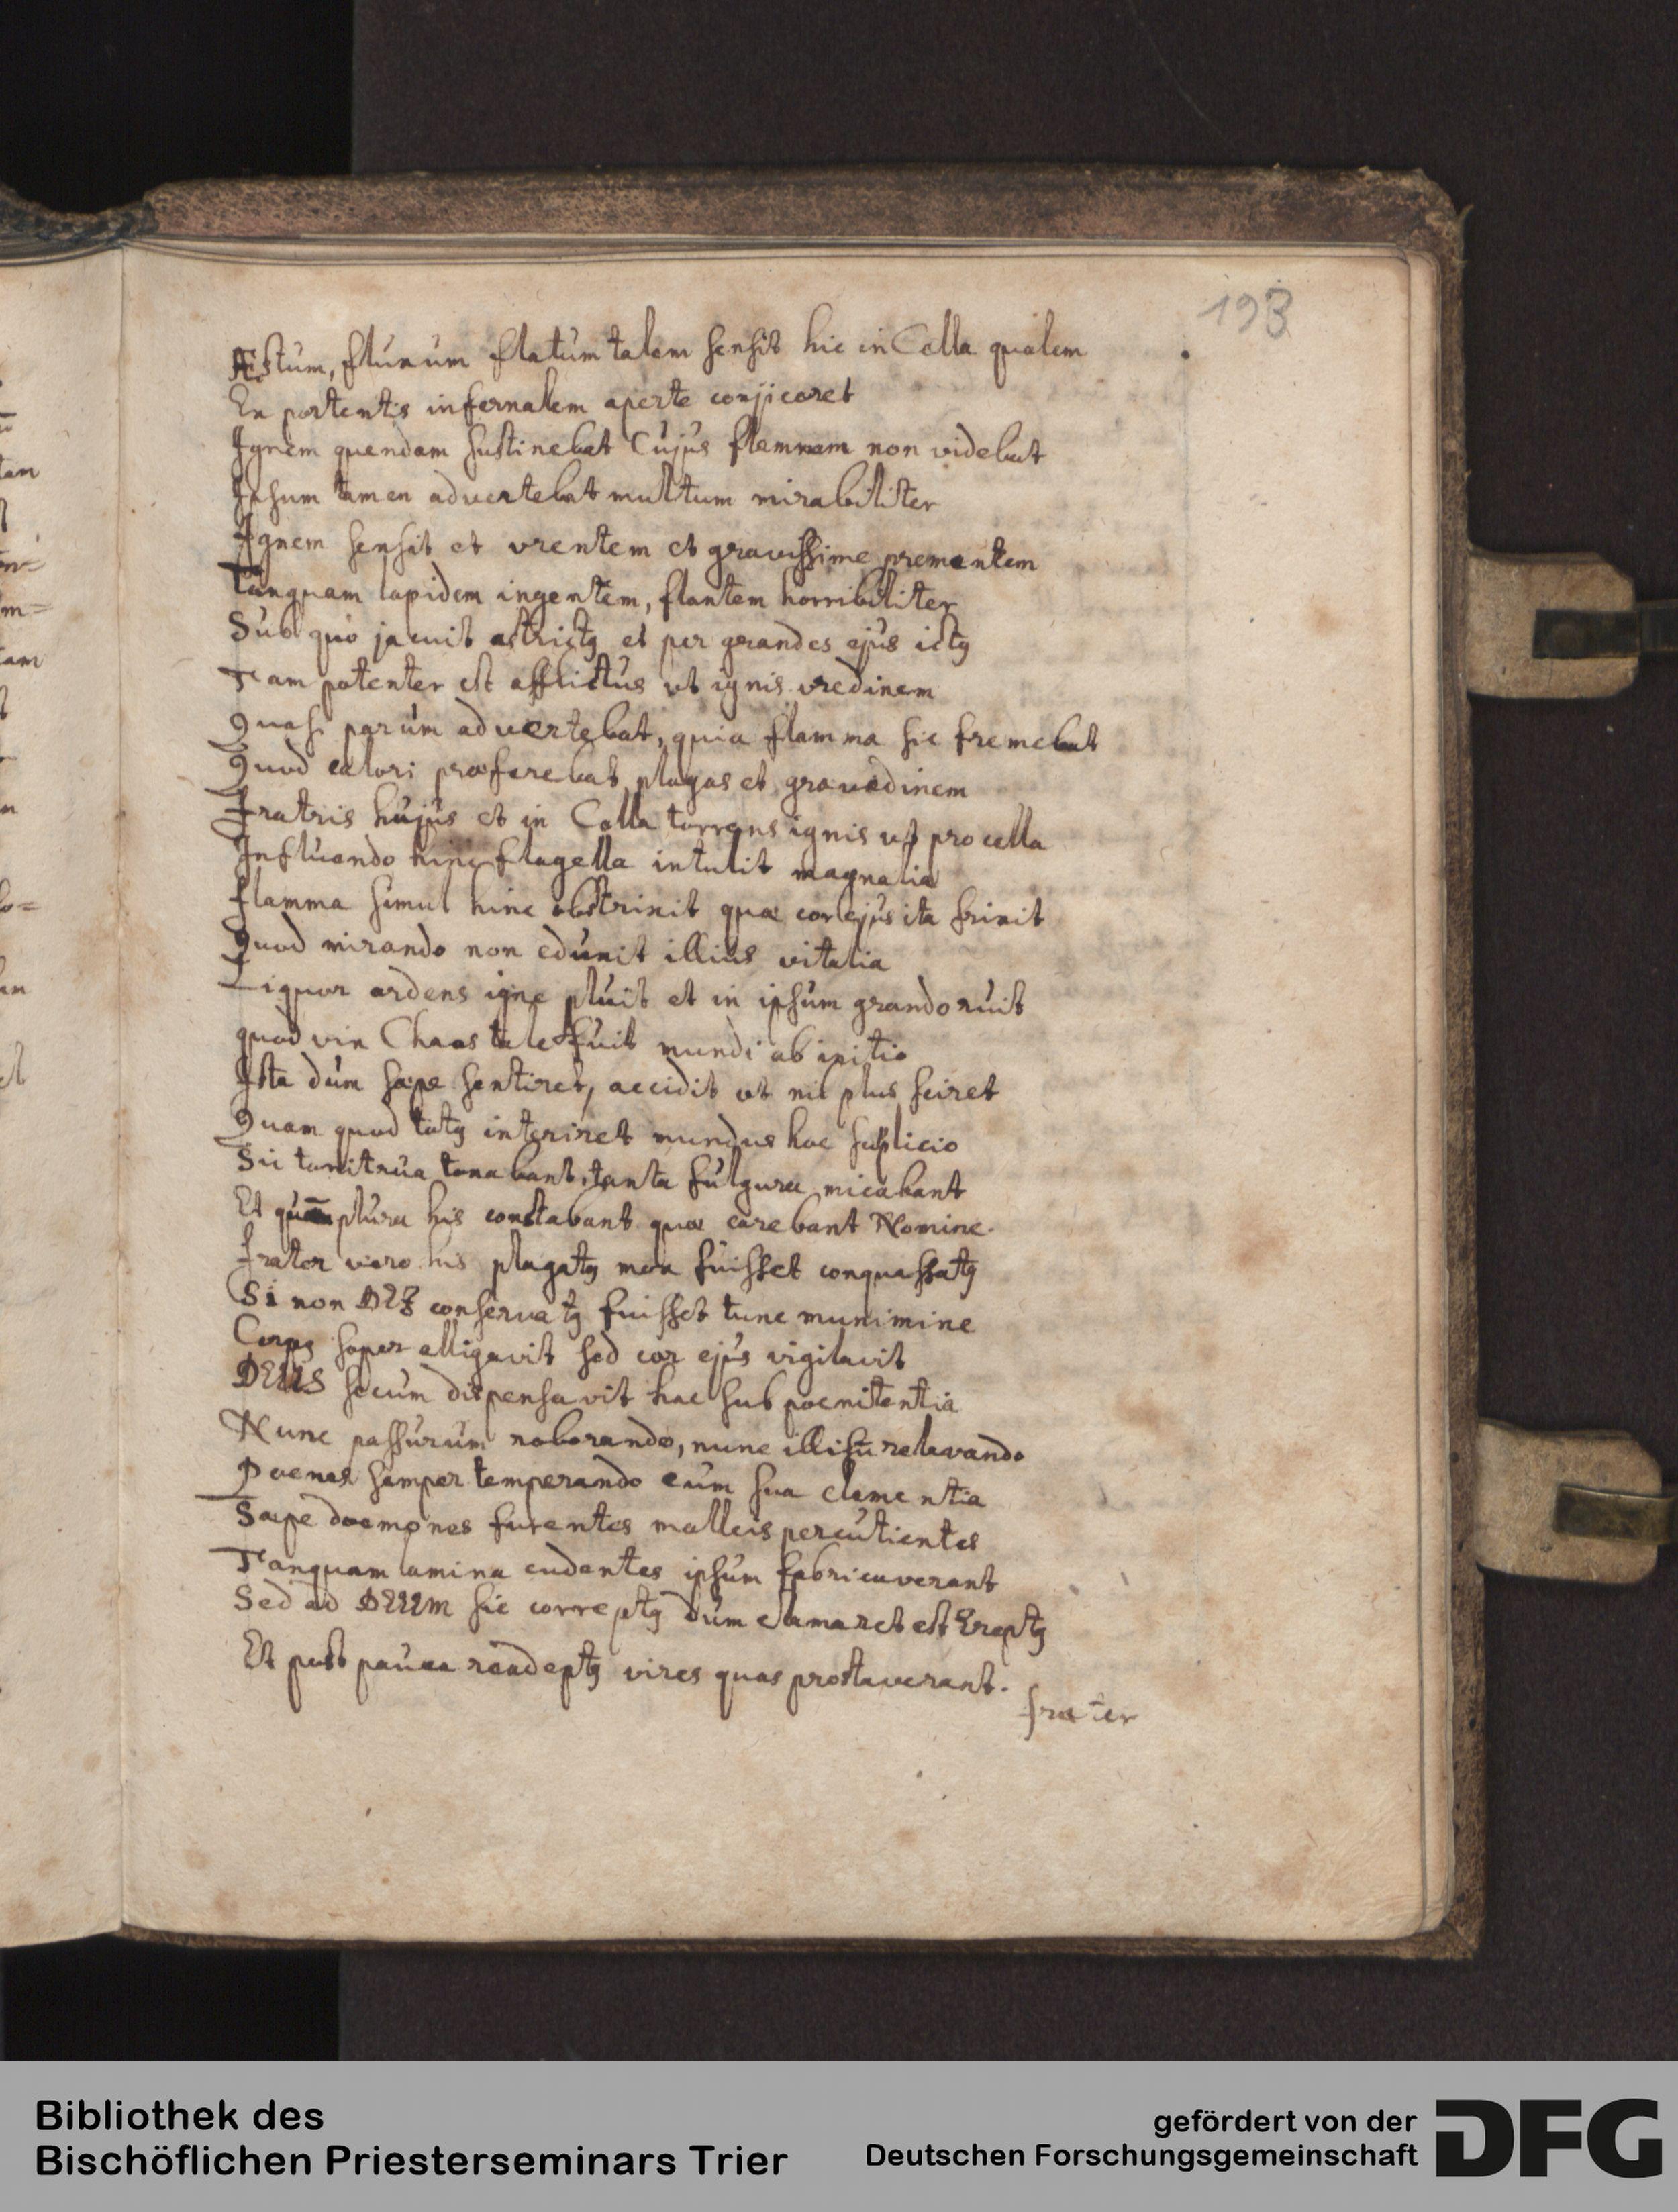 193
Æstum, flunum flatum talem sensit hic in Cella qualem
Ex portentis infernalem aperte conjiceret
Ignem quendam sustinebat Cujus flammam non videbat
Ipsum tamen advertebat multum mirabiliter
Ignem sensit et vrentem et gravissime prementem
Tanquam lapidem ingentem, flantem horribiliter
Sub quo jacuit astrictꝯ et per grandes ejus ictꝯ
Tam potenter est afflictus vt ignis vredinem
Quasi parum advertebat, quia flamma sic fremebat
Quod calori præferebat plagas et gravedinem
Fratris hujus et in Cella torrens ignis ut procella
Influendo hinc flagella intulit magnalia
flamma simul hinc obstrinxit quæ cor ejus ita frixit
Quod mirando non edunit illius vitalia
Liquor ardens igne pluit et in ipsum grando ruit
quod vix Chaos tale fuit mundi ab initio
Ista dum sæpe sentiret, accidit vt nil plus sciret
Quam quod totꝯ interiret mundus hoc suplicio
Sic tonitrua tonabant, tanta fulgura micabant
Et quam plura his constabant quæ carebant Nomine.
frater vero his plagatꝯ mox fuisset conquassatꝯ
Si non DEO conservatꝯ fuisset tunc munimine
Corpꝯ sopor alligavit sed cor ejus vigilavit
DEUS secum dispensavit hac sub poenitentia
Nunc passurum roborando, nunc illisum relevando
Poenas semper temperando cum sua clementia
Sæpe dæmones furentes malleis percutientes
Tanquam lamina cudentes ipsum fabricaverant
Sed ad DEUM sic correptꝯ dum clamaret est Ereptꝯ
Et post pauca readeptꝯ vires quas prostaverant.
frater
Bibliothek des
Bischöflichen Priesterseminars Trier
gefördert von der
Deutschen Forschungsgemeinschaft
DFG